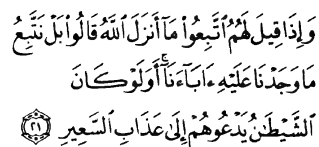 وَإِذَا قِيلَ لَهُمُ ٱتَّبِعُواْ مَآ أَنزَلَ ٱللَّهُ قَالُواْ بَلۡ نَتَّبِعُ
مَا وَجَدۡنَا عَلَيۡهِ ءَابَآءَنَآۚ أَوَلَوۡ كَانَ
ٱلشَّيۡطَٰنُ يَدۡعُوهُمۡ إِلَىٰ عَذَابِ ٱلسَّعِيرِ ٢١